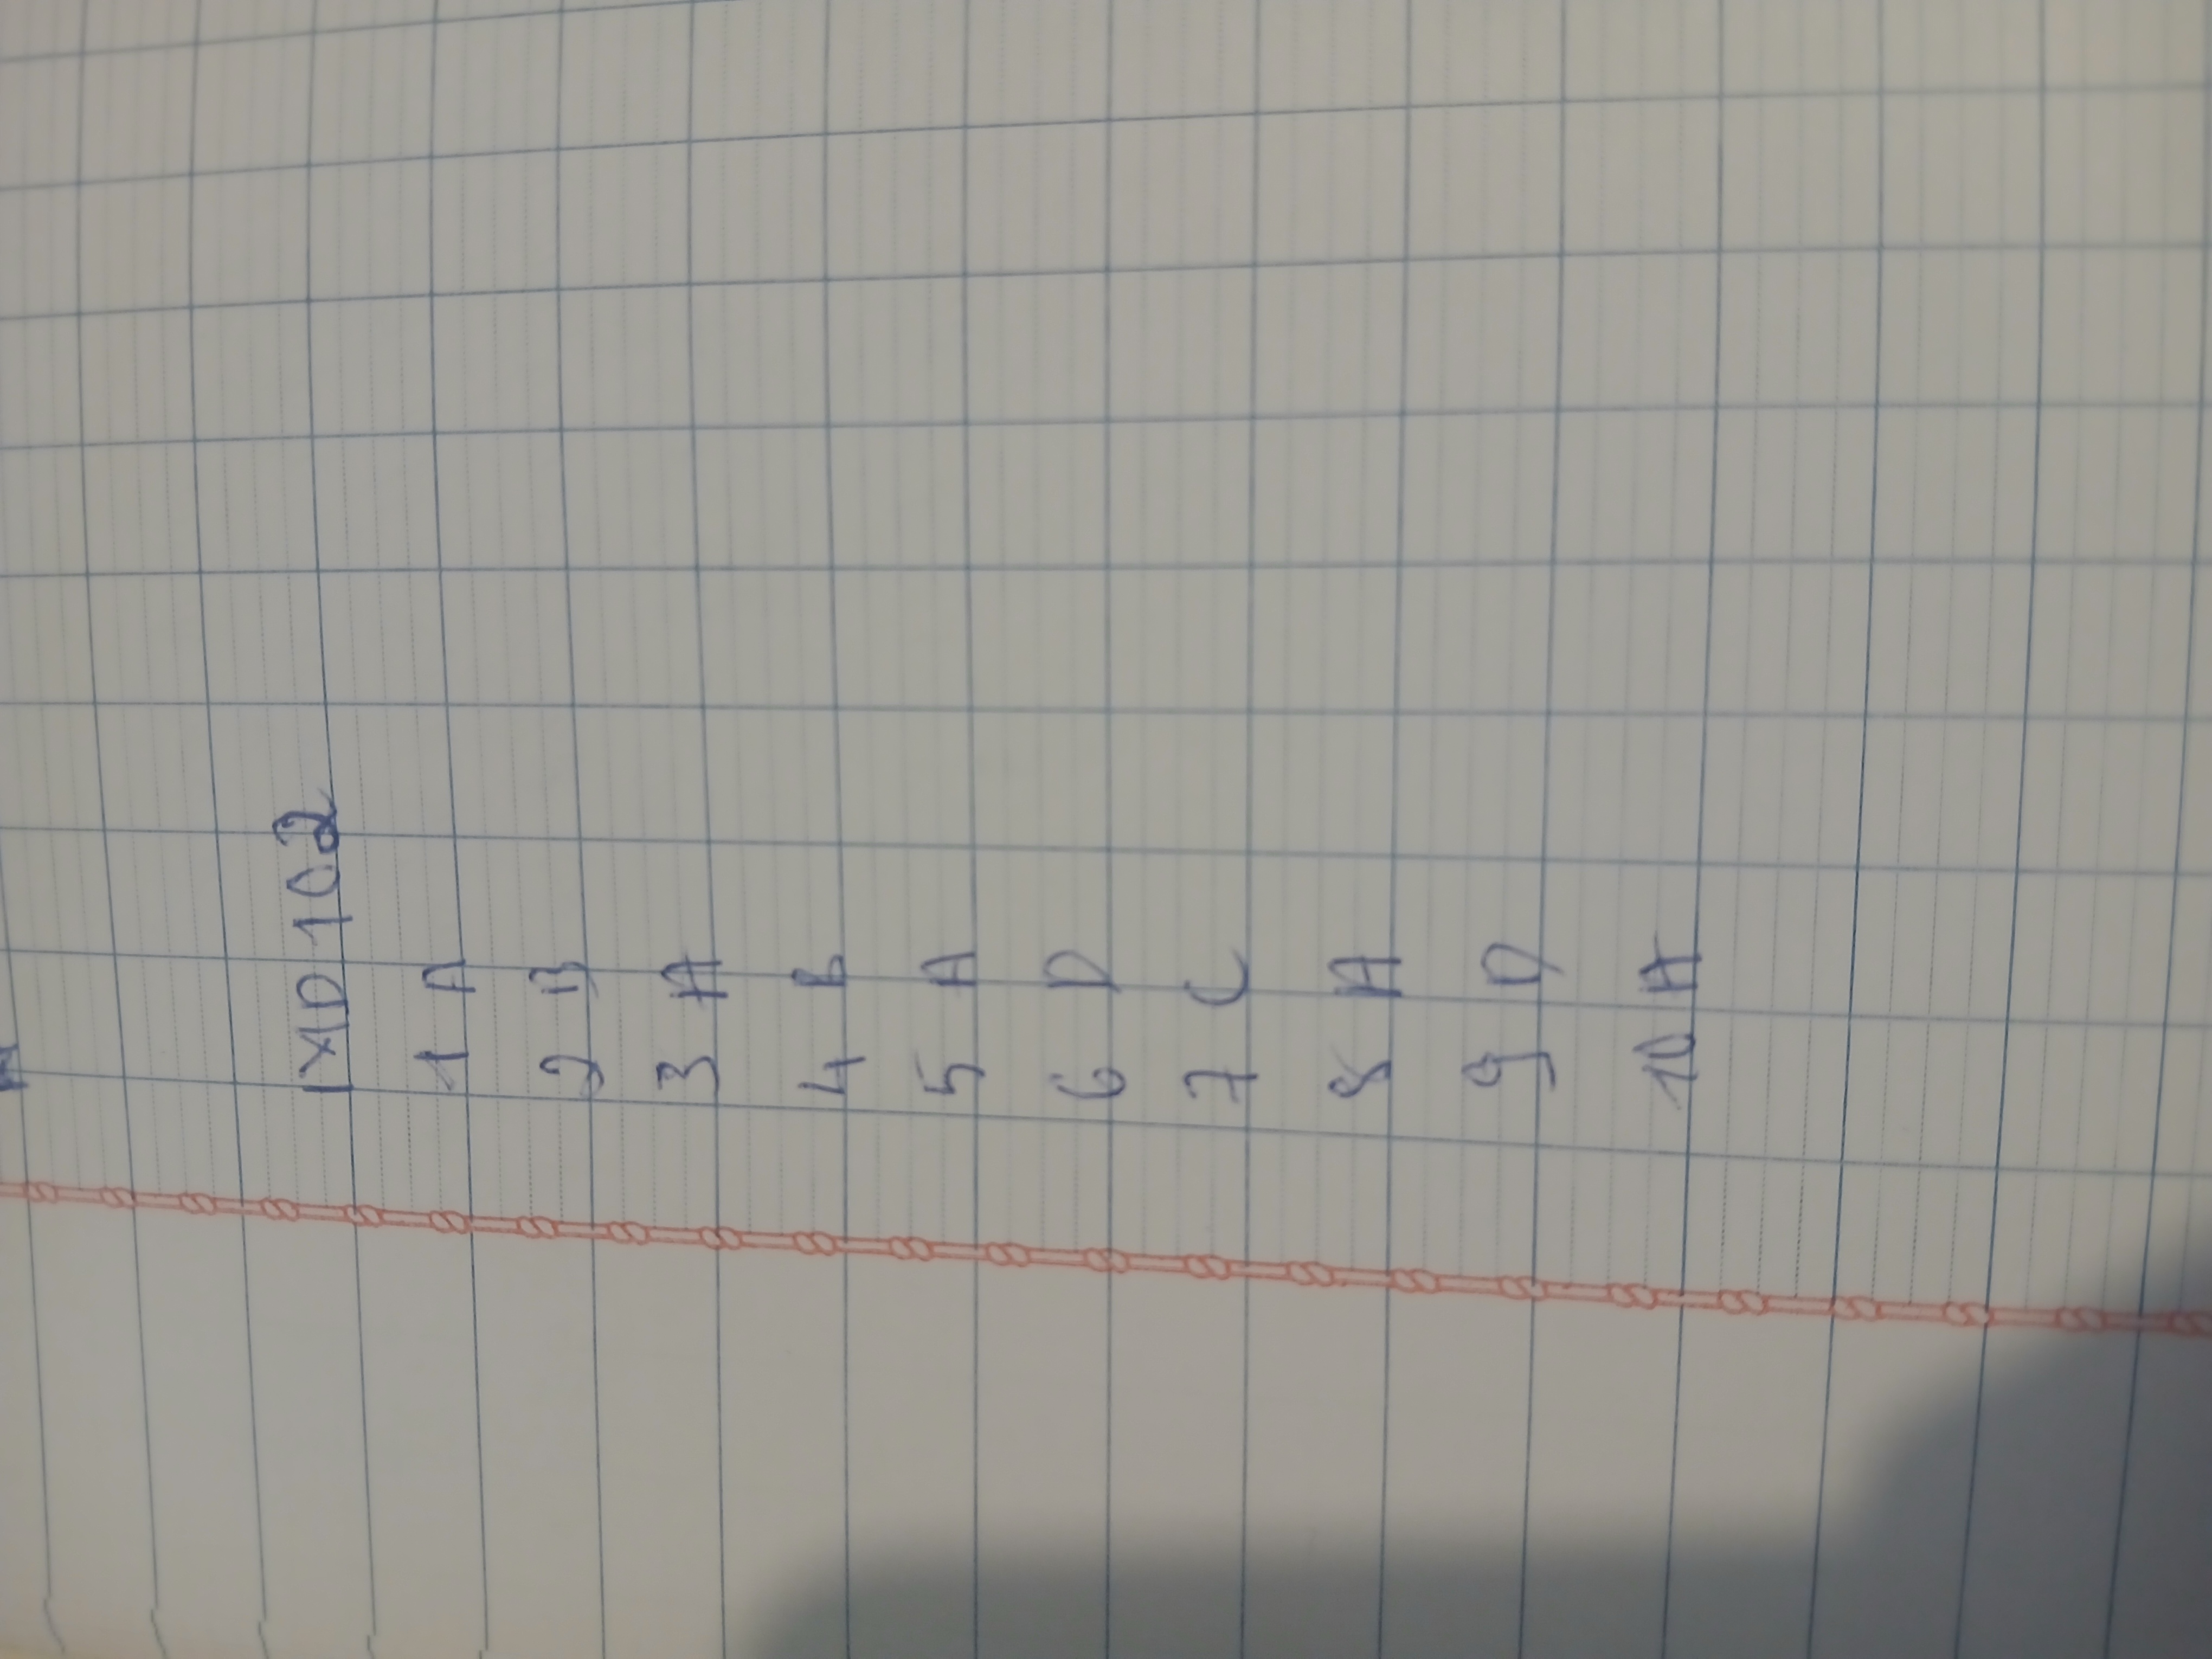 MD 102
1 A
2 B
3 A
4 B
5 A
6 D
7 C
8 A
9 D
10 A